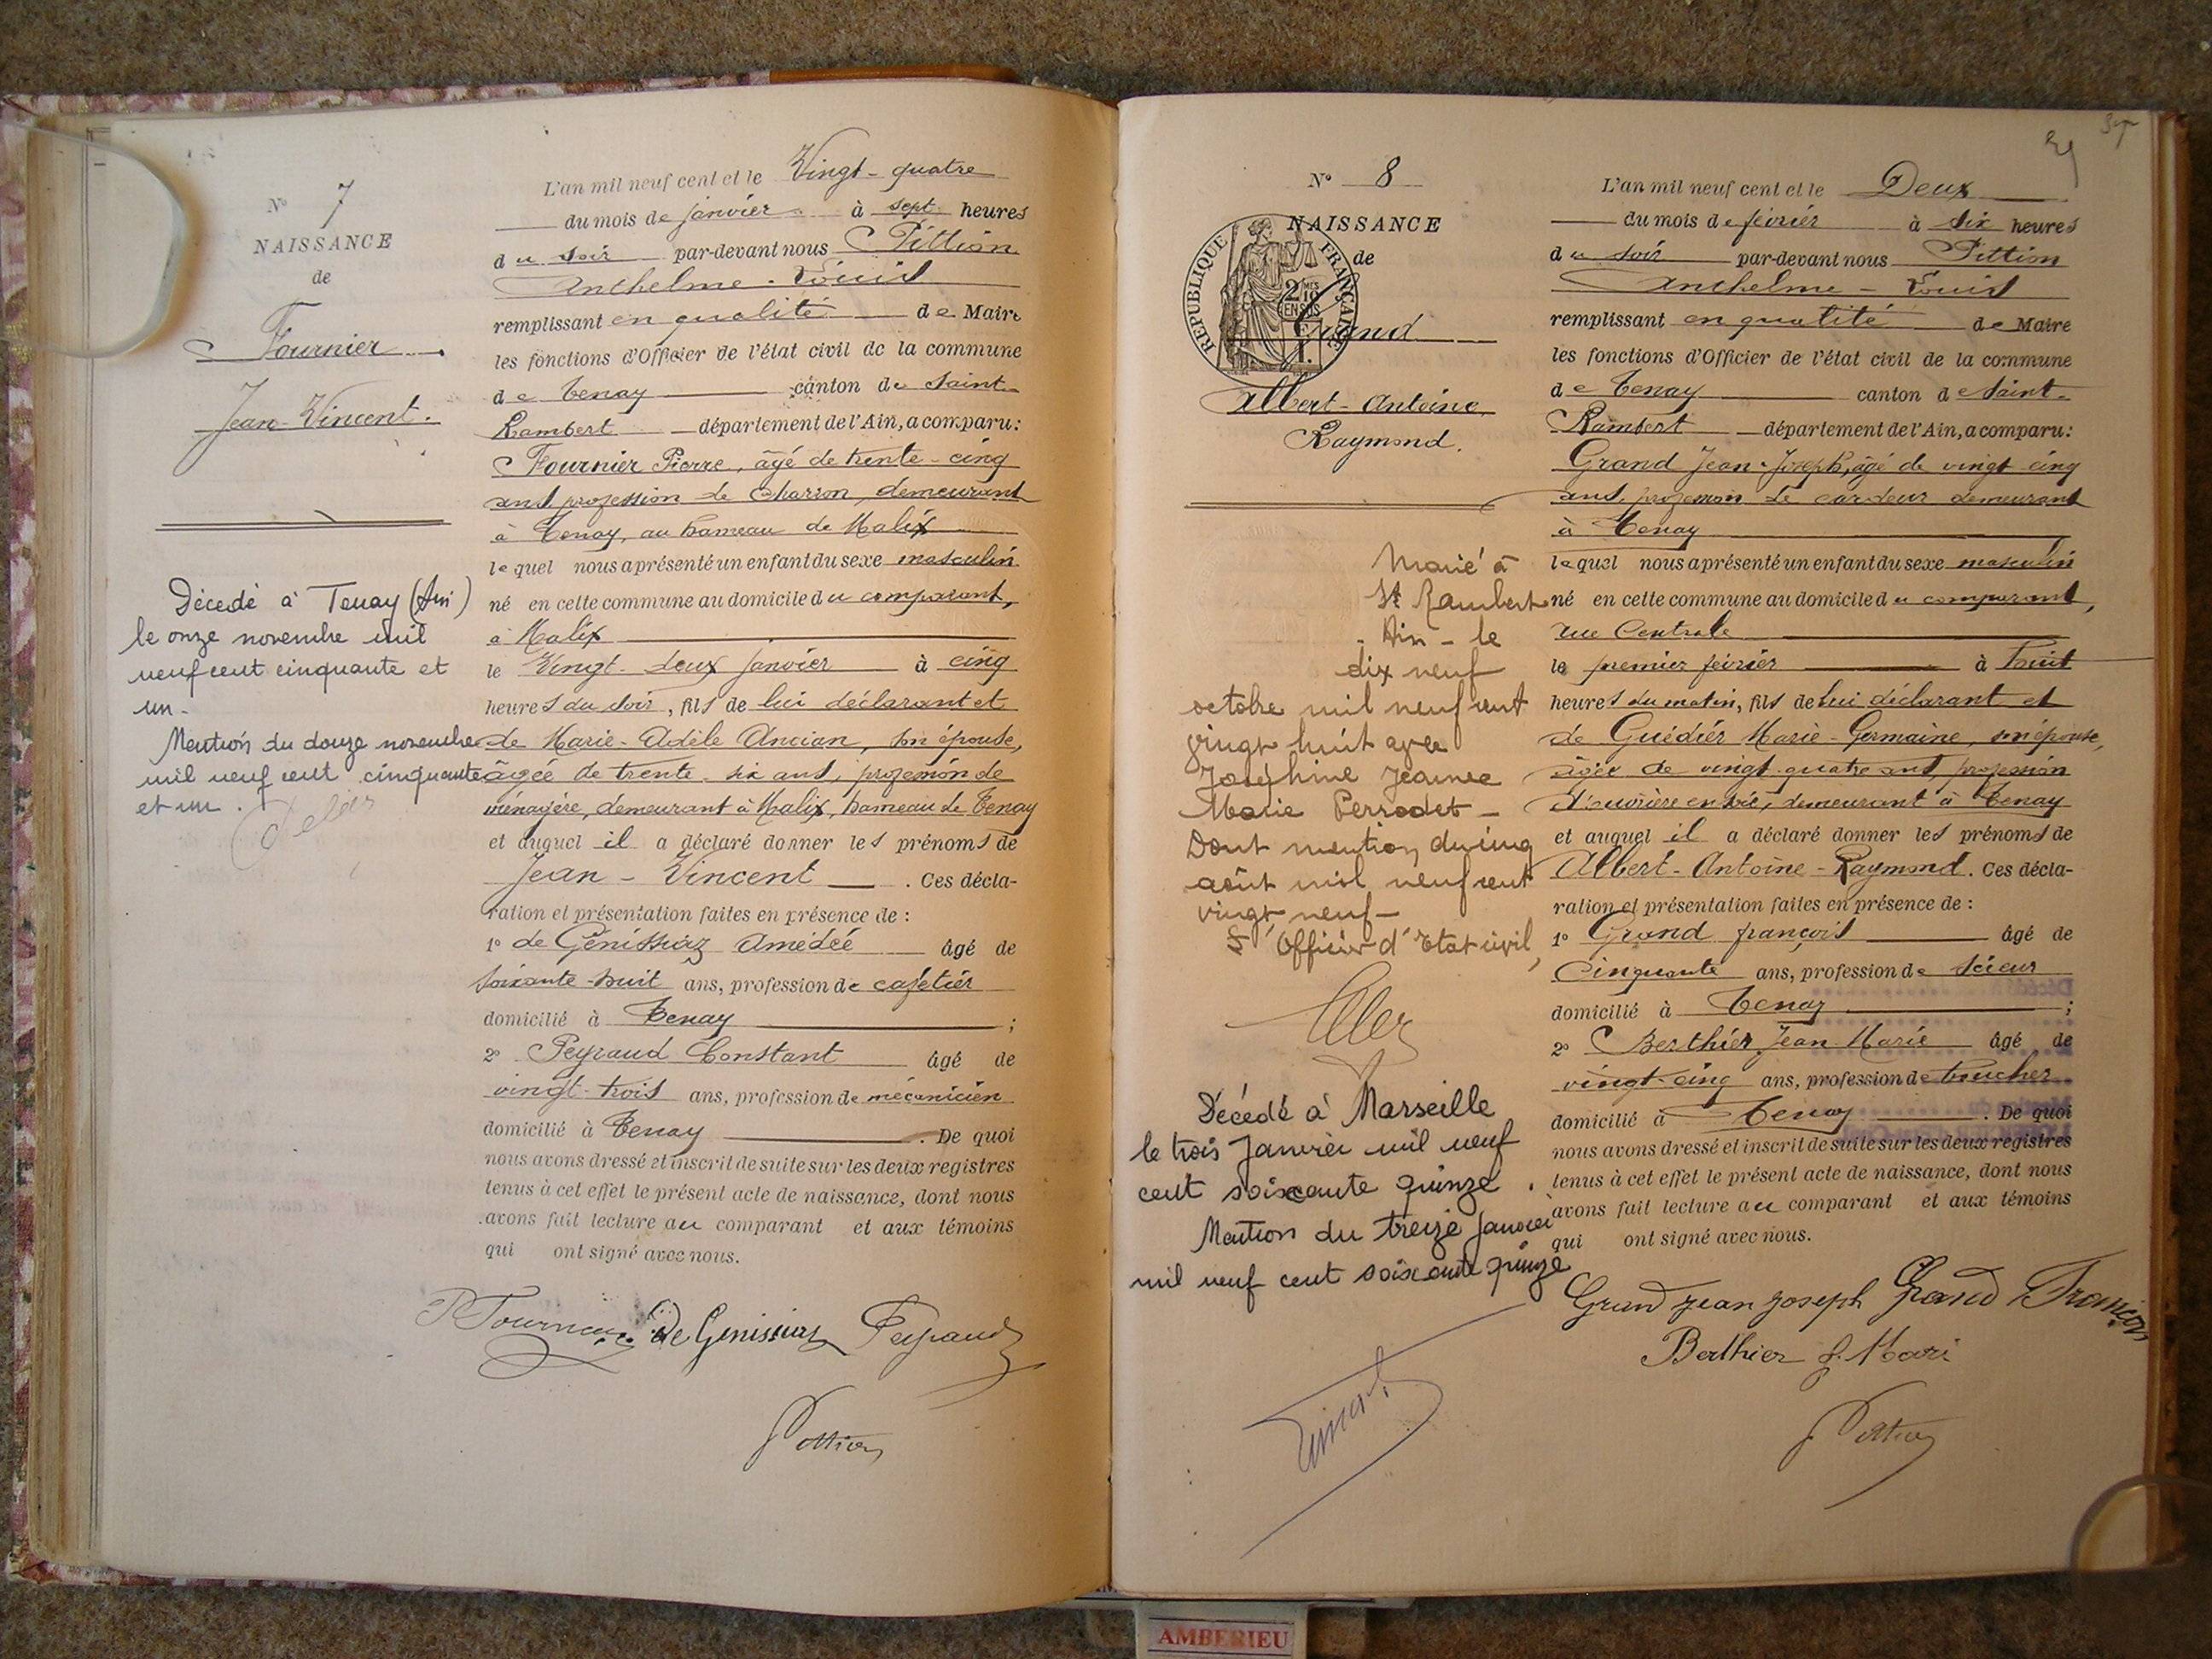 N° 7
NAISSANCE
de
Fournier
Jean-Vincent.
Décédé à Tenay (Ain)
le onze novembre mil
neuf cent cinquante et
un -
Mention du douze novembre
mil neuf cent cinquante
et un.
L'an mil neuf cent et le Vingt-quatre
du mois de janvier à sept heures
du soir par-devant nous Pittion
Anthelme-Louis
remplissant en qualité de Maire
les fonctions d'Officier de l'état civil de la commune
de Tenay canton de Saint-
Rambert département de l'Ain, a comparu:
Fournier Pierre, âgé de trente-cinq
ans profession de Charron, demeurant
à Tenay, au hameau de Malix
lequel nous a présenté un enfant du sexe masculin
né en cette commune au domicile du comparant,
à Malix
le Vingt-deux janvier à cinq
heures du soir, fils de lui déclarant et
de Marie-Adèle Ancian, son épouse,
âgée de trente-six ans, profession de
ménagère, demeurant à Malix, hameau de Tenay
et auquel il a déclaré donner les prénoms de
Jean-Vincent. Ces décla-
ration et présentation faites en présence de :
1° de Génissiaz Amédée âgé de
soixante-huit ans, profession de cafetier
domicilié à Tenay ;
2° Peyraud Constant âgé de
vingt-trois ans, profession de mécanicien
domicilié à Tenay. De quoi
nous avons dressé et inscrit de suite sur les deux registres
tenus à cet effet le présent acte de naissance, dont nous
avons fait lecture au comparant et aux témoins
qui ont signé avec nous.
P Fournier De Genissiaz Peyraud
Pittion
N° 8
NAISSANCE
de
RÉPUBLIQUE FRANÇAISE
2 MES 1/10
EN SUS
Grand
Albert-Antoine
Raymond.
Marié à
St Rambert
- Ain - le
dix neuf
octobre mil neuf cent
vingt huit avec
Joséphine Jeanne
Marie Perrodet -
Dont mention du cinq
août mil neuf cent
vingt neuf -
L'Officier d'Etat civil,
Décédé à Marseille
le trois Janvier mil neuf
cent soixante quinze.
Mention du treize Janvier
mil neuf cent soixante quinze
L'an mil neuf cent et le Deux
du mois de février à six heures
du soir par-devant nous Pittion
Anthelme - Louis
remplissant en qualité de Maire
les fonctions d'Officier de l'état civil de la commune
de Tenay canton de Saint-
Rambert département de l'Ain, a comparu:
Grand Jean-Joseph, âgé de vingt cinq
ans, profession de cardeur demeurant
à Tenay
lequel nous a présenté un enfant du sexe masculin
né en cette commune au domicile du comparant,
rue Centrale
le premier février à huit
heures du matin, fils de lui déclarant et
de Guédiér Marie-Germaine, son épouse,
âgée de vingt-quatre ans, profession
d'ouvrière en soie, demeurant à Tenay
et auquel il a déclaré donner les prénoms de
Albert-Antoine-Raymond. Ces décla-
ration et présentation faites en présence de :
1° Grand françois âgé de
Cinquante ans, profession de scieur
domicilié à Tenay ;
2° Berthier Jean Marie âgé de
vingt-cinq ans, profession de boucher
domicilié à Tenay. De quoi
nous avons dressé et inscrit de suite sur les deux registres
tenus à cet effet le présent acte de naissance, dont nous
avons fait lecture au comparant et aux témoins
qui ont signé avec nous.
Grand jean joseph Grand François
Berthier J. Mari
Pittion
AMBERIEU